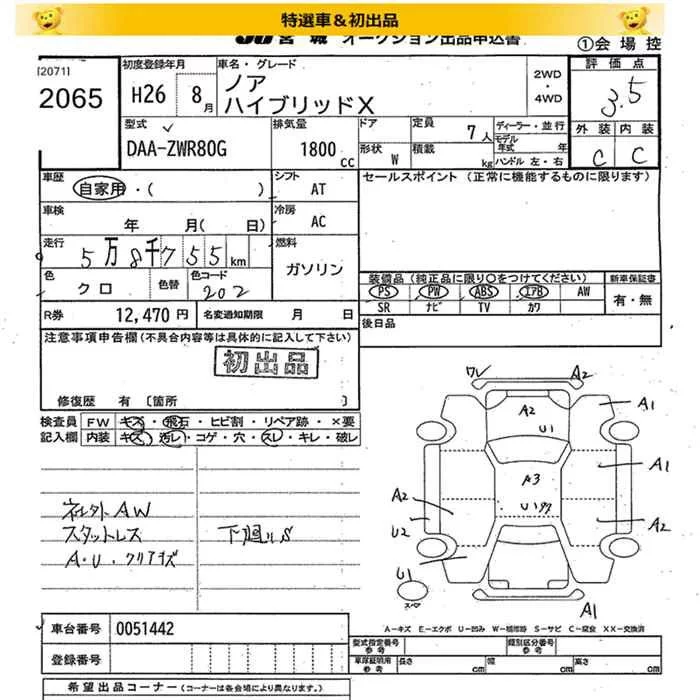 特選車＆初出品
JU 宮城 オークション出品申込書
①会場控
[2071]
2065
初度登録年月
H26 8月
車名・グレード
ノア
ハイブリッドX
2WD
・
4WD
評価点
3.5
外装 内装
C C
型式
DAA-ZWR80G
排気量
1800cc
ドア
形状 W
定員 7人
積載 kg
ディーラー・並行
モデル年式 年
ハンドル 左・右
車歴
自家用・( )
シフト AT
車検
年 月( 日)
冷房 AC
走行
5万8千755km
燃料
ガソリン
色 クロ
色替
色コード 202
R券 12,470円
名変通知期限 月 日
セールスポイント (正常に機能するものに限ります)
装備品 (純正品に限り○をつけてください)
新車保証書
PS PW ABS エアB AW
SR ナビ TV カワ
有・無
後日品
注意事項申告欄(不具合内容等は具体的に記入して下さい)
初出品
修復歴 有 [箇所 ]
検査員 FW キズ・飛石・ヒビ割・リペア跡・×要
記入欄 内装 キズ・汚レ・コゲ・穴・スレ・キレ・破レ
社外AW
スタットレス
A・U・クリアキズ
下廻りS
ワレ A2
A2 A1
U1
A3 A1
A2
U2 A2
U1
A1
スペア
A-キズ E-エクボ U-凹み W-補修跡 S-サビ C-腐食 XX-交換済
車台番号 0051442
登録番号
型式指定番号 類別区分番号
車庫証明用参考 長さ cm 幅 cm 高さ cm
希望出品コーナー (コーナーは各会場により異なります。)